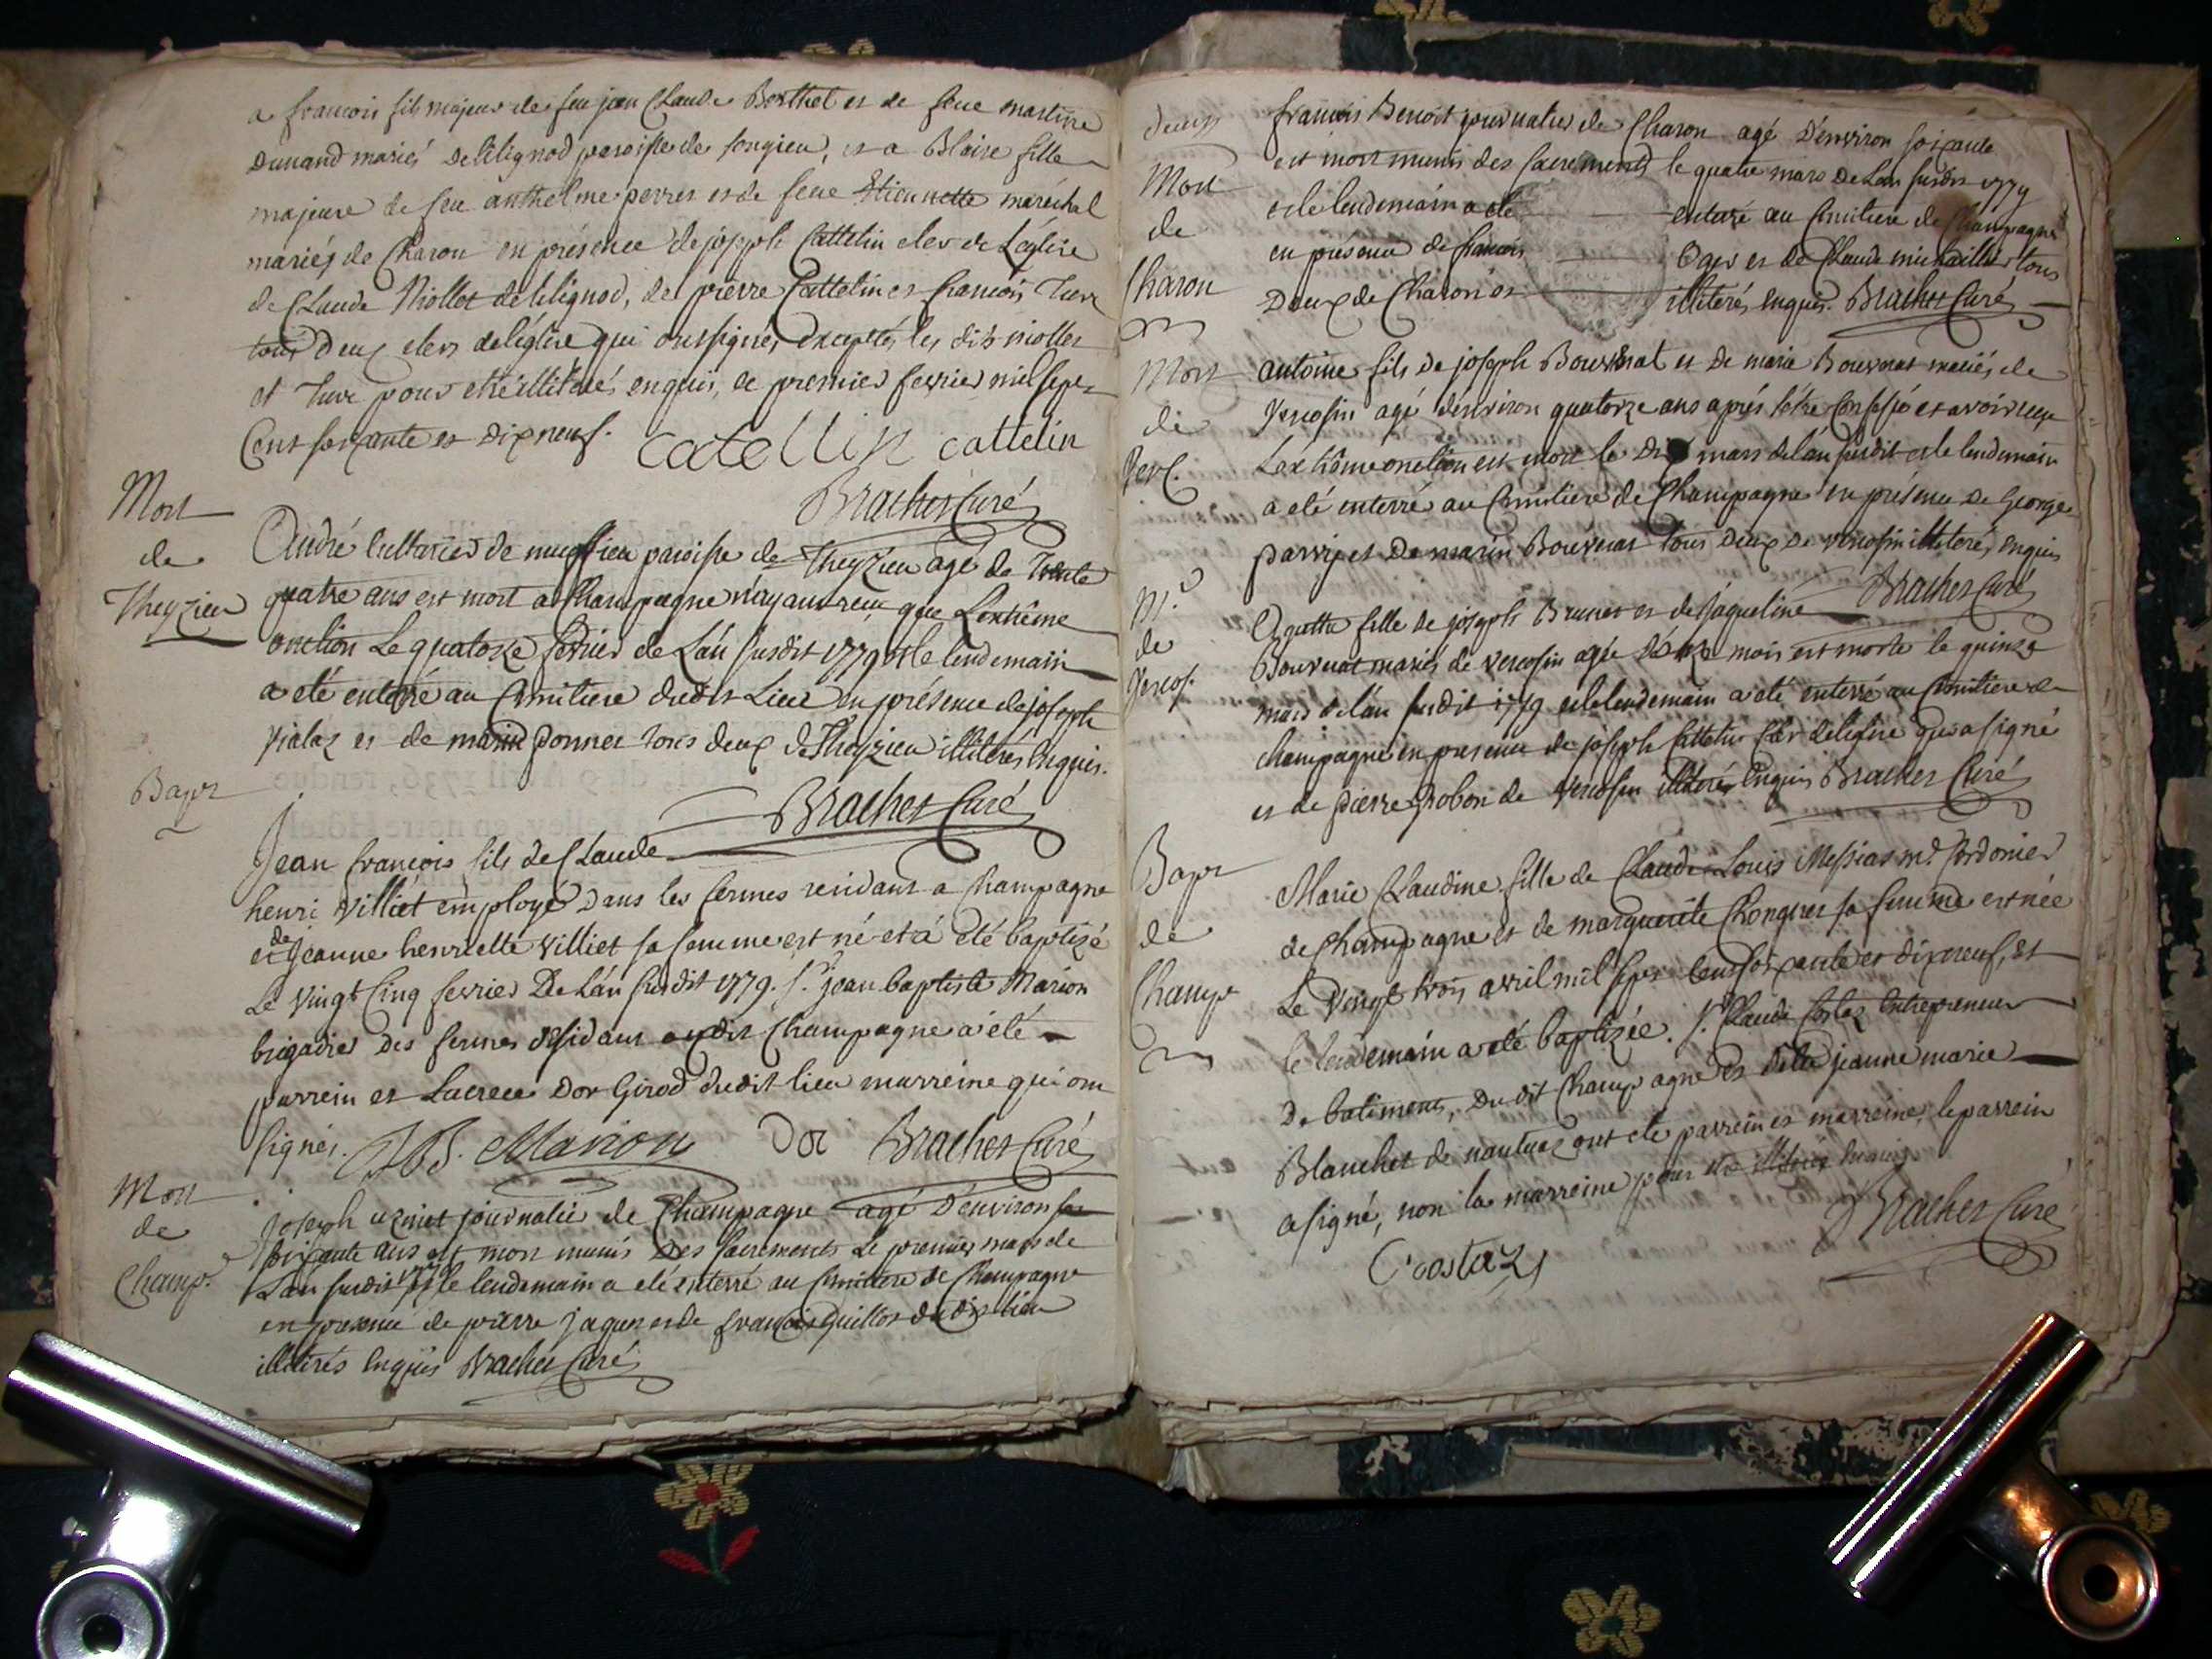 a francois fils majeur de feu jean Claude Berthet et de feue martine
Dunand mariés de lilignod paroisse de songieu, et a Blaise fille
majeure de feu anthelme perret et de feue Etiennette maréchal
mariés de Charon en présence de joseph Cattelin clerc de L'église
de Claude Niollet de lilignod, de pierre Cattelin et francois Ture
tous Deux clers de l'église qui ont signés, exceptés les dits niollet
et Ture pour etre illiterés enquis, ce premier fevrier mil sept
Cent soixante et dix neuf. Catellin Cattelin
Brachet Curé
Mort
de
Theyzieu
André Cultavier de mussieu paroisse de Theyzieu agé de Trente
quatre ans est mort a Champagne n'ayant reçu que Lextrême
onction Le quatorze fevrier de L'an susdit 1779 et le lendemain
a eté enterré au Cimitiere dudit Lieu en présence de joseph
vialaz et de marin ponnet tous deux de Theyzieu illiterés Enquis.
Brachet Curé
Bapt
Jean françois fils de Claude
henri Villiet employé Dans les fermes residant a Champagne
et de Jeanne henriette villiet sa femme est né et a été baptizé
Le vingt Cinq fevrier De L'an susdit 1779. Sr. jean baptiste Marion
brigadier Des fermes résidant audit Champagne a été
parrein et Lucrece Dor Girod dudit lieu marreine qui ont
signés. JB. Marion Dor Brachet Curé
Mort
de
Champ.
joseph uzinet journalier de Champagne agé D'environ soi
soixante ans est mort munis Des sacrements Le premier mars de
L'an susdit 1779 et le lendemain a eté enterré au Cimitiere de Champagne
en presence de pierre jaquet et de francois Guillot du dit lieu
illiterés Enquis Brachet Curé
Mort
de
Charon
francois Benoit journalier de Charon agé D'environ soixante
est mort munis des sacrements le quatre mars de L'an susdit 1779
et le lendemain a eté enterré au Cimitiere de Champagne
en présence de francois Oger et de Claude michaillet tous
Deux de Charon et illiterés enquis. Brachet Curé
Mort
de
Verc.
antoine fils de joseph Bouvnat et de marie Bouvnat mariés de
Vercosin agé d'environ quatorze ans aprés s'etre Confessé et avoir reçu
Lextrême onction est mort le Dix mars de l'an susdit et le lendemain
a eté enterré au Cimitiere de Champagne en présence de George
parvy et De marin Bouvnat tous deux de vercosin illiteré, Enquis
Brachet Curé
M.
de
Vercos.
Agathe fille de joseph Brunet et de Jaqueline
Bouvnat mariés de vercosin agée de onze mois est morte le quinze
mars de l'an susdit 1779 et le lendemain a eté enterré au Cimitiere de
champagne en presence de joseph Cattelin Clerc de l'eglise qui a signé
et de pierre Grobon de vercosin illiteré, Enquis Brachet Curé
Bapt
de
Champ
Marie Claudine fille de Claude Louis Messias md. Cordonier
de Champagne et de marguerite Chongnet sa femme est née
Le vingt trois avril mil sept Cent soixante et dix neuf, et
le lendemain a eté baptizée. Sr. Claude Costaz Entrepreneur
De batiments, Du dit Champagne et Delle jeanne marie
Blanchet de nantuaz ont eté parrein et marreine, le parrein
a signé, non la marreine pour etre illiterée Enquis.
Brachet Curé
C costaz